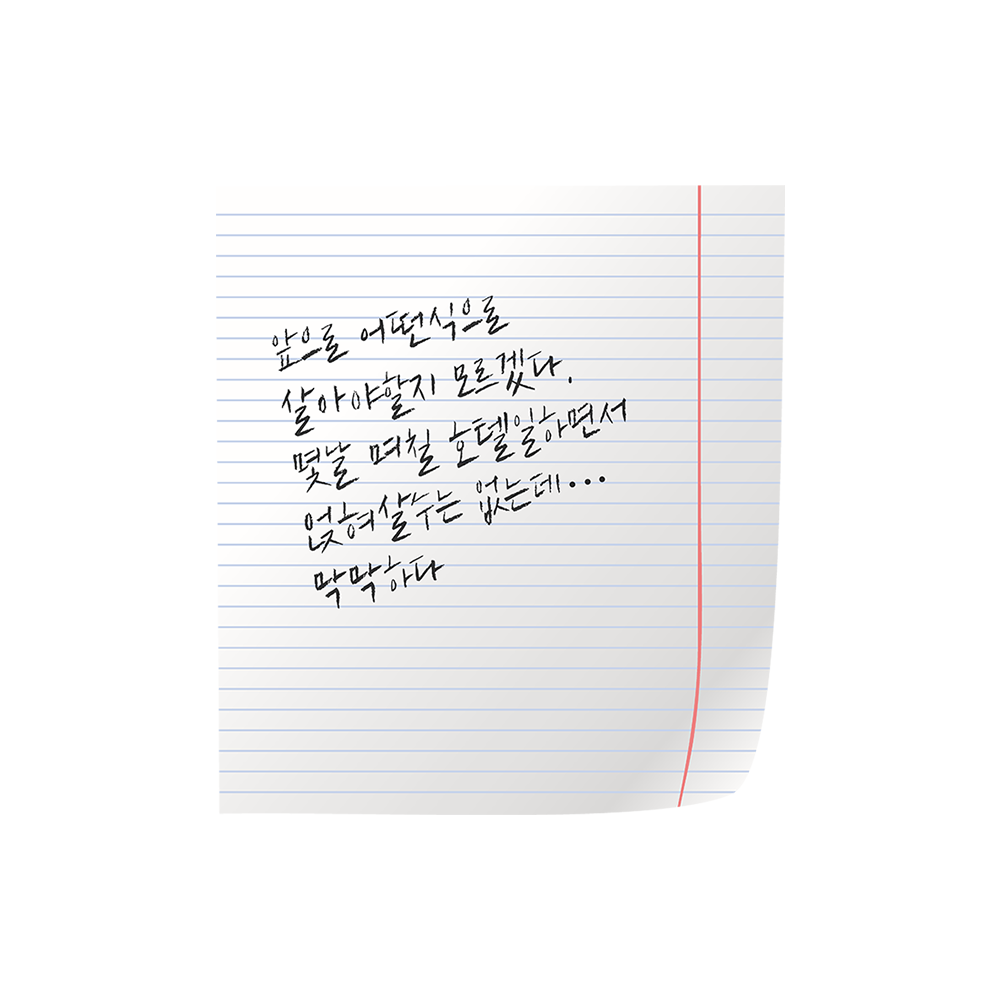 앞으로 어떤식으로
살아야할지 모르겠다.
몇날 며칠 호텔일하면서
얹혀살수는 없는데...
막막하다